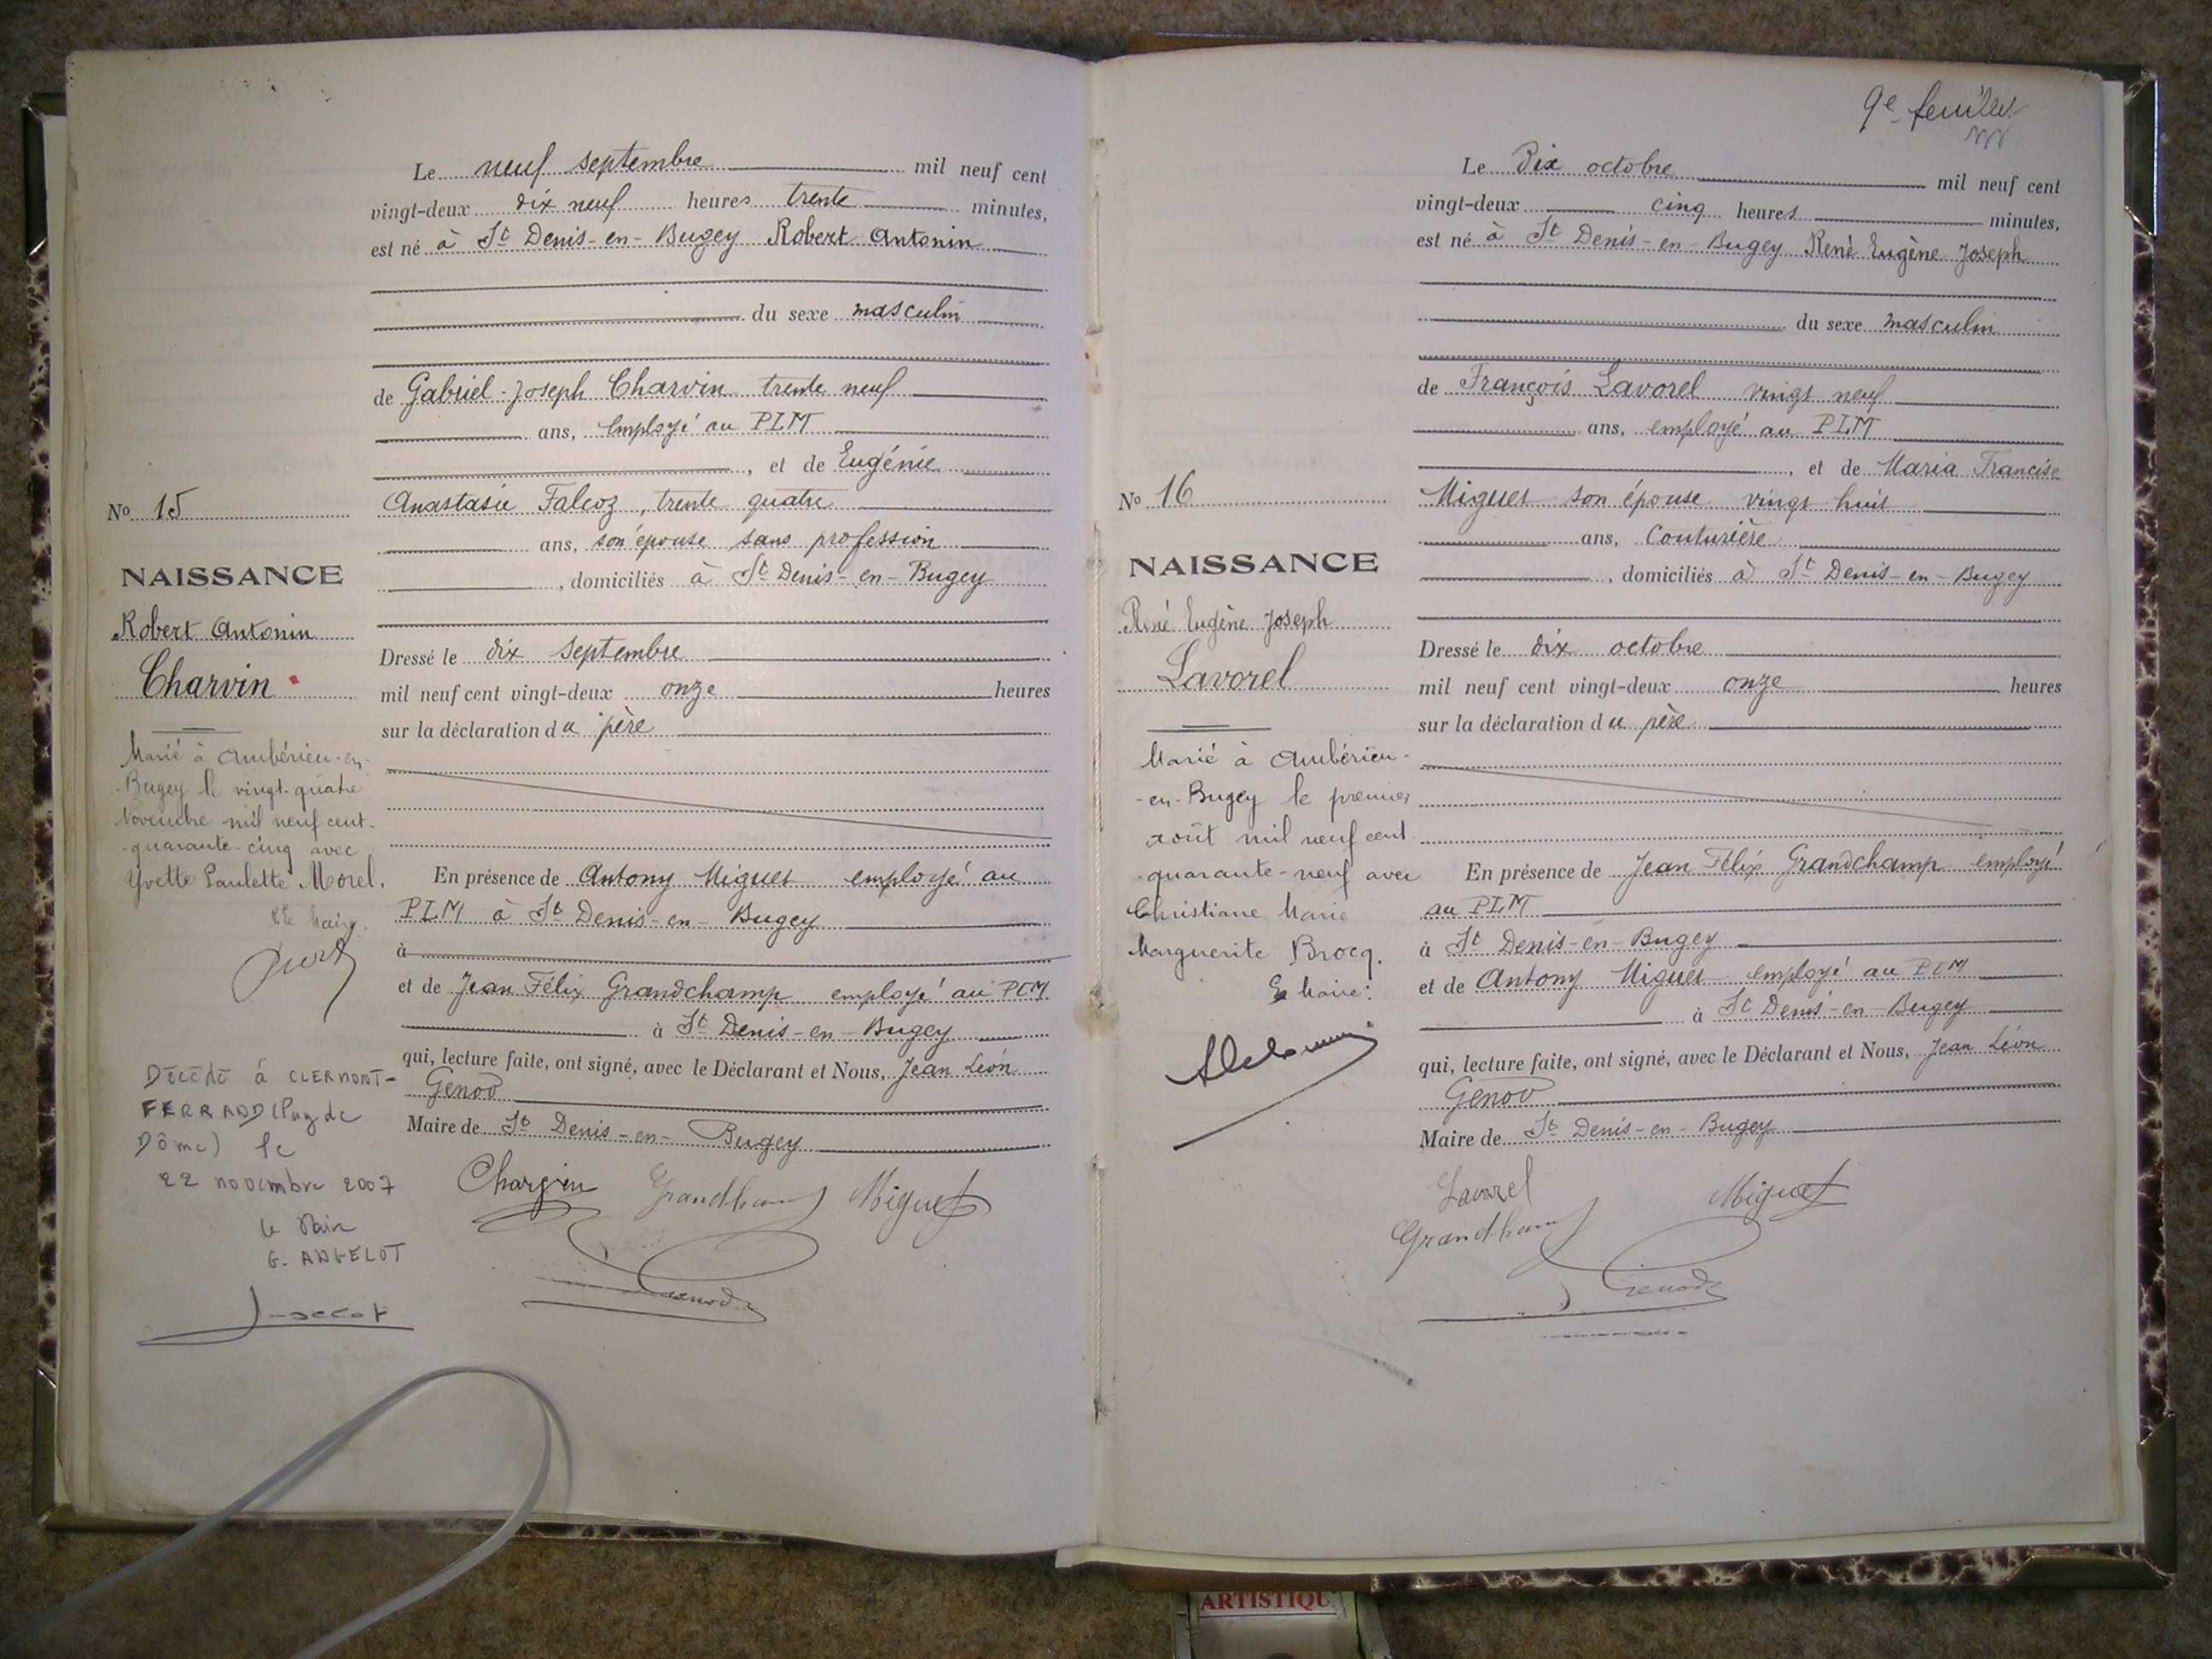 Le neuf septembre mil neuf cent
vingt-deux dix neuf heures trente minutes,
est né à St Denis-en-Bugey Robert Antonin
du sexe masculin
de Gabriel-Joseph Charvin trente neuf
ans, employé au PLM
, et de Eugénie
Anastasie Falcoz, trente quatre
ans, son épouse sans profession
, domiciliés à St Denis-en-Bugey
Dressé le dix septembre
mil neuf cent vingt-deux onze heures
sur la déclaration du père
En présence de Antony Miguet employé au
PLM à St Denis-en-Bugey
à
et de Jean Félix Grandchamp employé au PLM
à St Denis-en-Bugey
qui, lecture faite, ont signé, avec le Déclarant et Nous, Jean Léon
Genod
Maire de St Denis-en-Bugey
Charvin Grandchamp Miguet
Genod
No 15
NAISSANCE
Robert Antonin
Charvin
Marié à Ambérieu-en-
-Bugey le vingt-quatre
Novembre mil neuf cent-
-quarante-cinq avec
Yvette Paulette Morel.
Le Maire.
DÉCÉDÉ à CLERMONT-
FERRAND (Puy de
Dôme) le
22 novembre 2007
Le Maire
G. ANGELOT
9e feuillet
Le Dix octobre mil neuf cent
vingt-deux cinq heures minutes,
est né à St Denis-en-Bugey René Eugène Joseph
du sexe masculin
de François Lavorel vingt neuf
ans, employé au PLM
, et de Maria Francise
Miguet son épouse vingt huit
ans, Couturière
, domiciliés à St Denis-en-Bugey
Dressé le dix octobre
mil neuf cent vingt-deux onze heures
sur la déclaration du père
En présence de Jean Félix Grandchamp employé
au PLM
à St Denis-en-Bugey
et de Antony Miguet employé au PLM
à St Denis-en-Bugey
qui, lecture faite, ont signé, avec le Déclarant et Nous, Jean Léon
Genod
Maire de St Denis-en-Bugey
Lavorel Miguet
Grandchamp
Genod
No 16
NAISSANCE
René Eugène Joseph
Lavorel
Marié à Ambérieu-
-en-Bugey le premier
août mil neuf cent
-quarante-neuf avec
Christiane Marie
Marguerite Brocq.
Le Maire:
ARTISTIQU